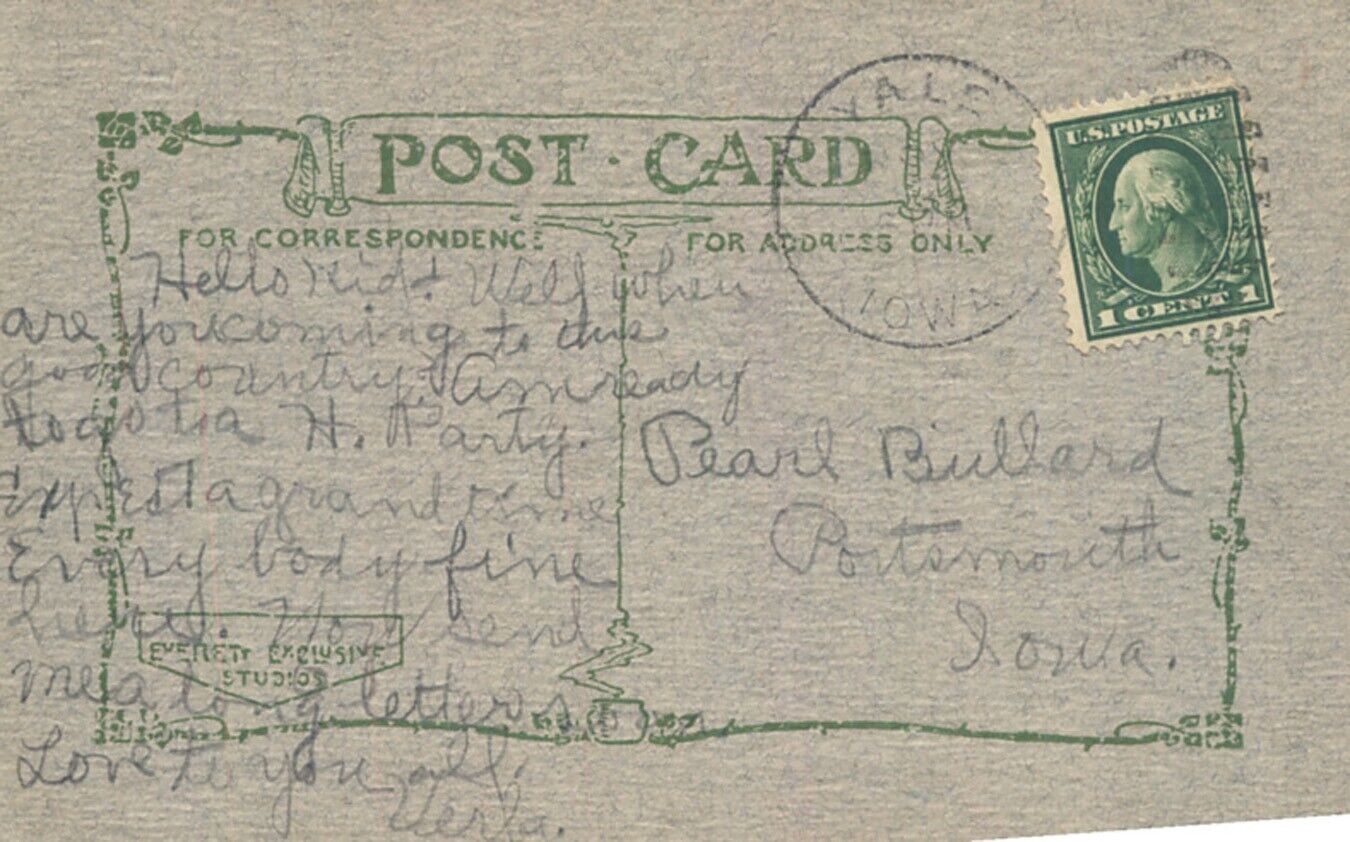 POST · CARD
FOR CORRESPONDENCE
FOR ADDRESS ONLY
YALE
IOWA
U.S. POSTAGE
1 CENT 1
Hello Kid! Well when
are you coming to this
good country. Am ready
to go to a H. Party.
Expest a grand time
Every body fine
here. Now send
me a long letter soon
Love to you all.
Verla.
Pearl Bullard
Portsmouth
Iowa.
EVERETT EXCLUSIVE
STUDIOS